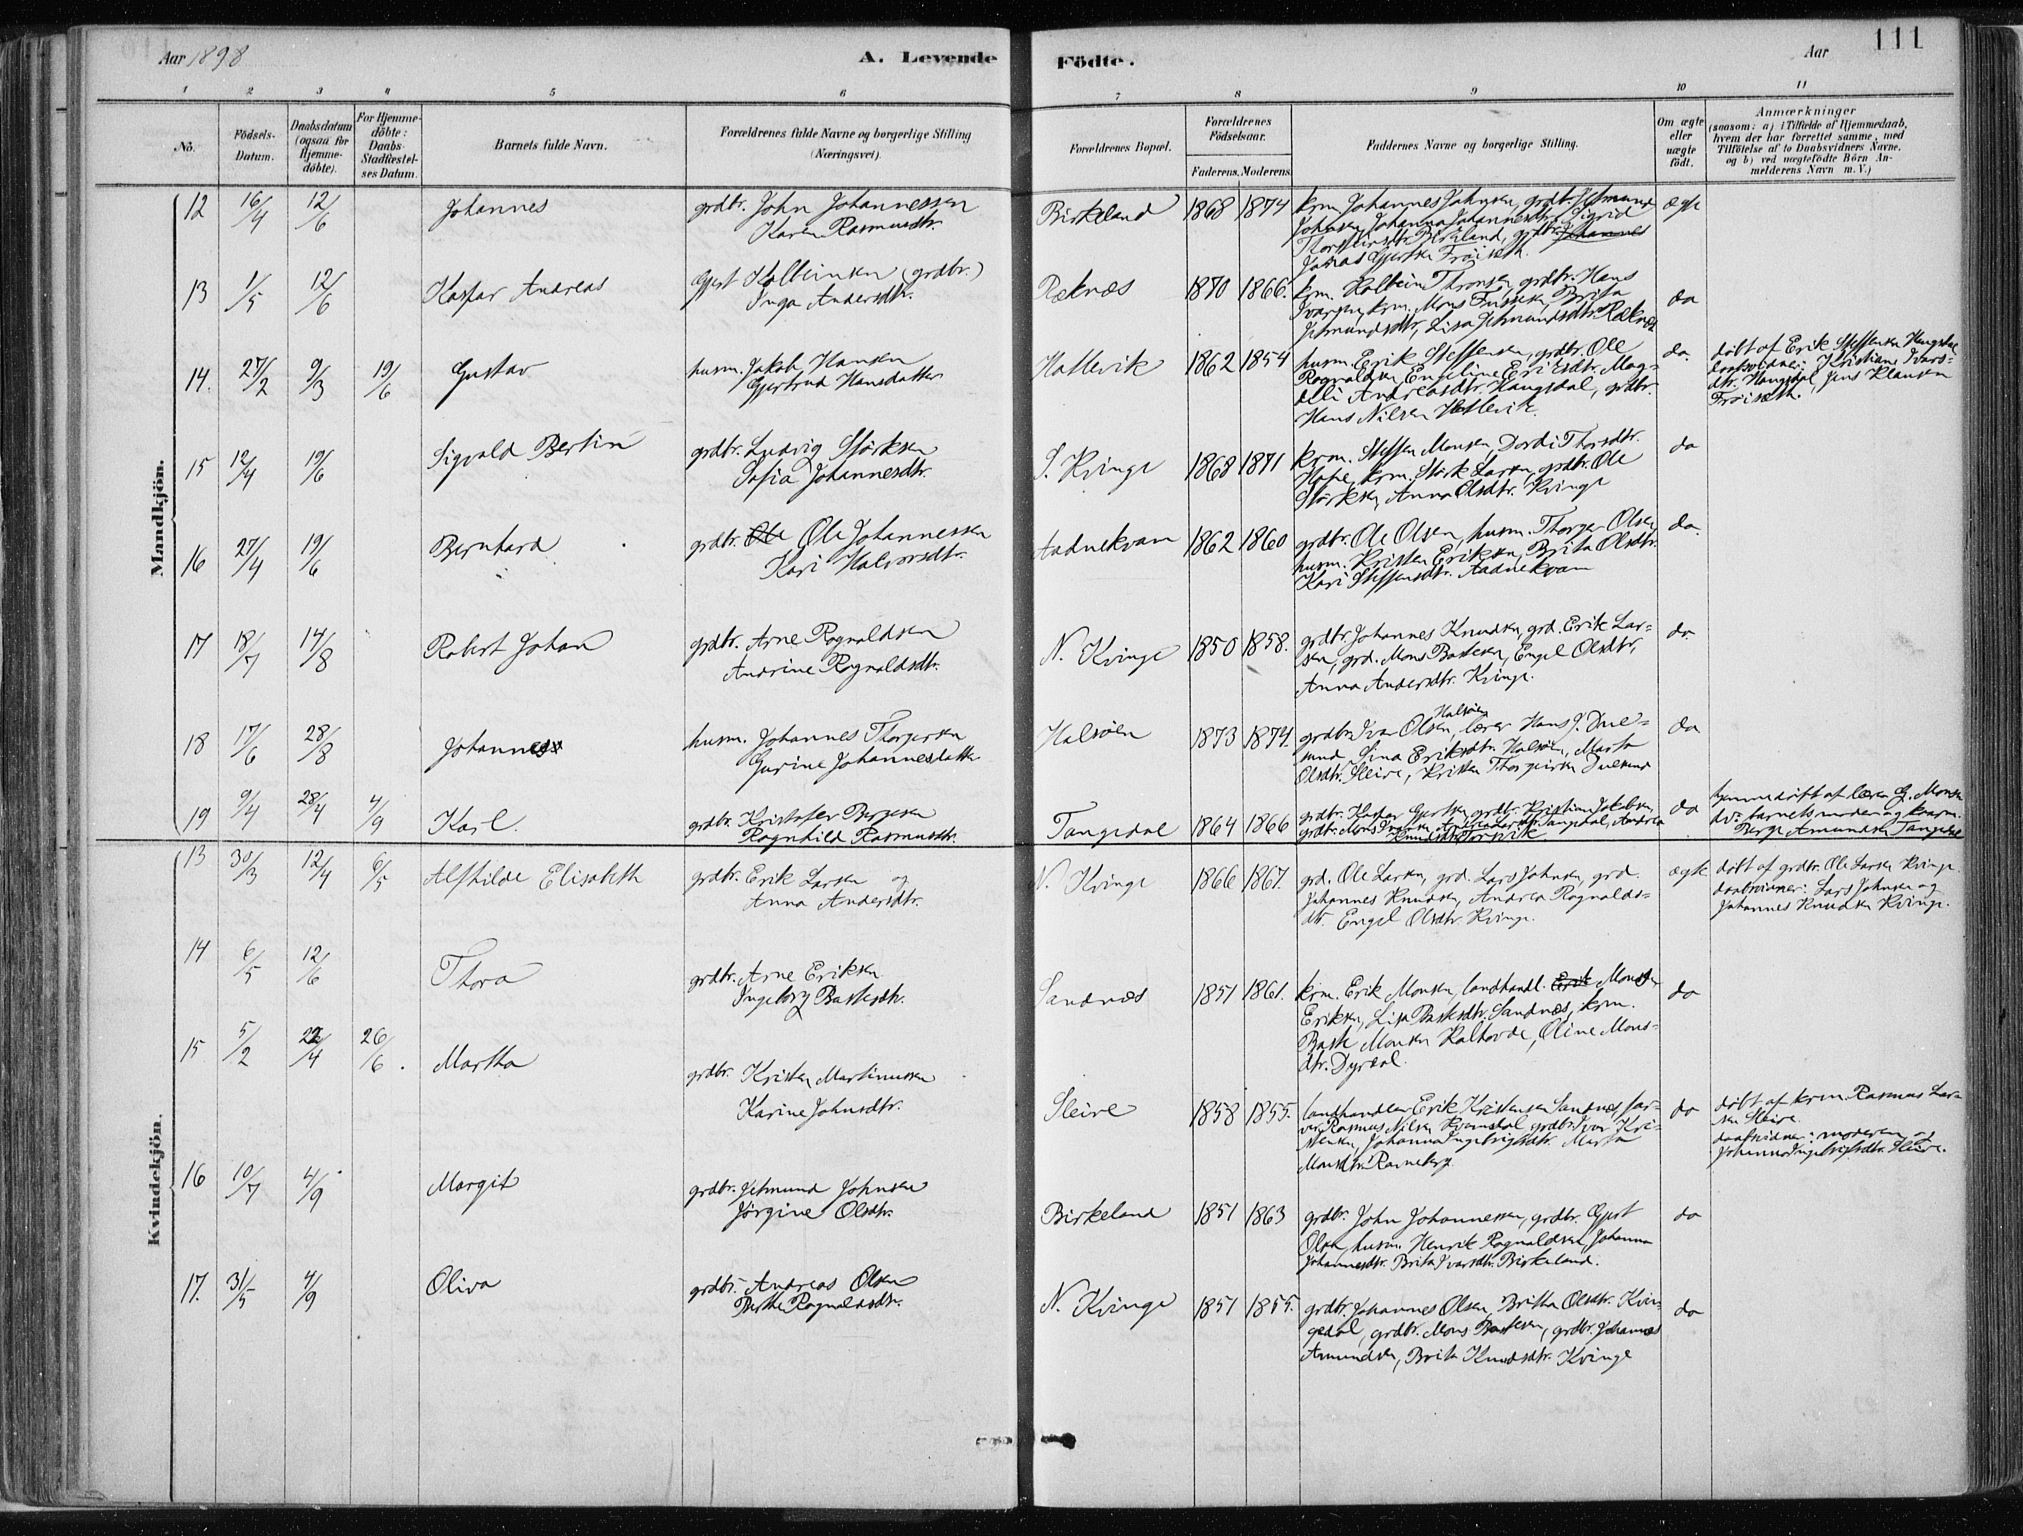 Aar 1898
A. Levende
Födte.
Aar
111
1 2 3 4 5 6 7 8 9 10 11
No.
Födsels-
Datum.
Daabsdatum
(ogsaa for
Hjemme-
döbte).
For Hjemme-
döbte:
Daabs-
Stadfæstel-
ses Datum.
Barnets fulde Navn.
Forældrenes fulde Navne og borgerlige Stilling
(Næringsvei).
Forældrenes Bopæl.
Forældrenes
Födselsaar.
Faderens. Moderens.
Faddernes Navne og borgerlige Stilling.
Om ægte
eller
uægte
födt.
Anmærkninger
(saasom: a) i Tilfælde af Hjemmedaab,
hvem der har forrettet samme, med
Tilföielse af to Daabsvidners Navne,
og b) ved uægtefödte Börn An-
melderens Navn m. V.)
Mandkjön.
12 16/4 12/6 Johannes
grdbr. John Johannessen
Karen Rasmusdtr.
Birkeland 1868 1874
krm. Johannes Johnsen, grdbr. Jetmund
Johnsen, Johanna Johannesdtr., Sigrid
Thorsteinsdtr. Birkeland, grdbr. Johannes
Jonas Gjertsen Frøiseth.
ægte
13 1/5 12/6 Kaspar Andreas
Gjert Kolbeinsen (grdbr.)
Inga Andersdtr.
Ræknæs 1870 1866.
krm. Kolbein Thronsen, grdbr. Hans
Ivarsen, krm. Mons Brita
Jetmundsdtr., Lisa Jetmundsdtr. Ræknæs
do
14. 27/2 9/3 19/6 Gustav
husm. Jakob Hansen
Gjertrud Hansdatter
Hatlevik 1862 1854
husm. Erik Steffensen, grdbr. Ole
Rognaldsen, Engeline Eriksdtr., Mag-
delli Andreasdtr. Haugsdal, grdbr.
Hans Nilsen Hatlevik.
do.
døbt af Erik Steffensen Haugsdal
daabsvidner: Kristiane Ivars-
dtr. Haugsdal, Jens Klausen
Frøiseth.
15 12/4 19/6 Sigvald Bertin
grdbr. Ludvig Størksen
Sofia Johannesdtr.
S. Kvinge 1868 1871
krm. Steffen Monsen, Dordi Thorsdtr.
Hope, krm. Størk Larsen, grdbr. Ole
Størksen, Anna Olsdtr. Kvinge
do
16 27/4 19/6 Bernhard
grdbr. Ole Ole Johannessen
Kari Halvorsdtr.
Aadnekvam 1862 1860
grdbr. Ole Olsen, husm. Thorger Olsen,
husm. Kristen Eriksen, Brita Olsdtr.
Kari Steffensdtr. Aadnekvam
do.
17 18/7 14/8 Robert Johan
grdbr. Arne Rognaldsen
Andrine Rognaldsdtr.
N. Kvinge 1850 1858.
grdbr. Johannes Knudsen, grd. Erik Lar-
sen, grd. Mons Bastesen, Engel Olsdtr.,
Anna Andersdtr. Kvinge.
do
18 17/6 28/8 Johannes
husm. Johannes Thorgersen
Gurine Johannesdatter
Halsøen 1873 1874.
grdbr. Ivar Olsen, Halsøen lærer Hans J. Due-
sund, Sina Eriksdtr. Halsøen, Marta
Olsdtr. Sleire, Kristen Thorgersen Duesund
do
19 9/4 28/4 4/9 Karl.
grdbr. Kristofer Børgesen
Rognhild Rasmusdtr.
Tangedal 1864 1866
grdbr. Kaspar Gjertsen, grdbr. Kristian Jakobsen,
grdbr. Mons Tangedal, Andrea
do
hjemmedøbt af lærer G. Monsen
dv: barnets moder og kaarm.
Børge Amundsen Tangedal
Kvindekjön.
13 30/3 12/4 6/5 Alfhilde Elisabeth
grdbr. Erik Larsen og
Anna Andersdtr.
N. Kvinge 1866 1867.
grd. Ole Larsen, grd. Lars Johnsen, grd.
Johannes Knudsen, Andrea Rognalds-
dtr. Engel Olsdtr. Kvinge.
ægte
døbt af grdbr. Ole Larsen Kvinge
daabsvidner: Lars Johnsen og
Johannes Knudsen Kvinge.
14 6/5 12/6 Thora
grdbr. Arne Eriksen
Ingeborg Bastesdtr.
Sandnæs 1851 1861.
krm. Erik Monsen, landhandl. Erik Mons
Eriksen, Lisa Bastesdtr. Sandnæs, krm.
Baste Monsen Kaltorde, Oline Mons-
dtr. Dyrdal.
do
15 5/2 22/4 26/6. Martha
grdbr. Kristen Martinussen
Karine Johnsdtr.
Sleire 1858 1855.
landhandler Erik Kristensen Sandnæs, far-
ver Rasmus Nilsen Kvamsdal, grdbr. Ivar Kri-
stensen, Johanna Ingebrigtsdtr., Marta
Monsdtr. Ravneberg.
do
døbt af krm. Rasmus Lar-
sen Sleire
daabsvidner: moderen og
Johanna Ingebrigtsdtr. Sleire.
16 10/7 4/9 Margit
grdbr. Jetmund Johnsen
Jørgine Olsdtr.
Birkeland 1851 1863
grdbr. John Johannessen, grdbr. Gjert
Olsen, husm. Henrik Rognaldsen, Johanna
Johannesdtr. Brita Ivarsdtr. Birkeland.
do
17. 31/5 4/9 Oliva
grdbr. Andreas Olsen
Berthe Rognaldsdtr.
N. Kvinge 1851 1855.
grdbr. Johannes Olsen, Britha Olsdtr. Kvin-
gedal, grdbr. Mons Bastesen, grdbr. Johannes
Amundsen, Brita Knudsdtr. Kvinge
do